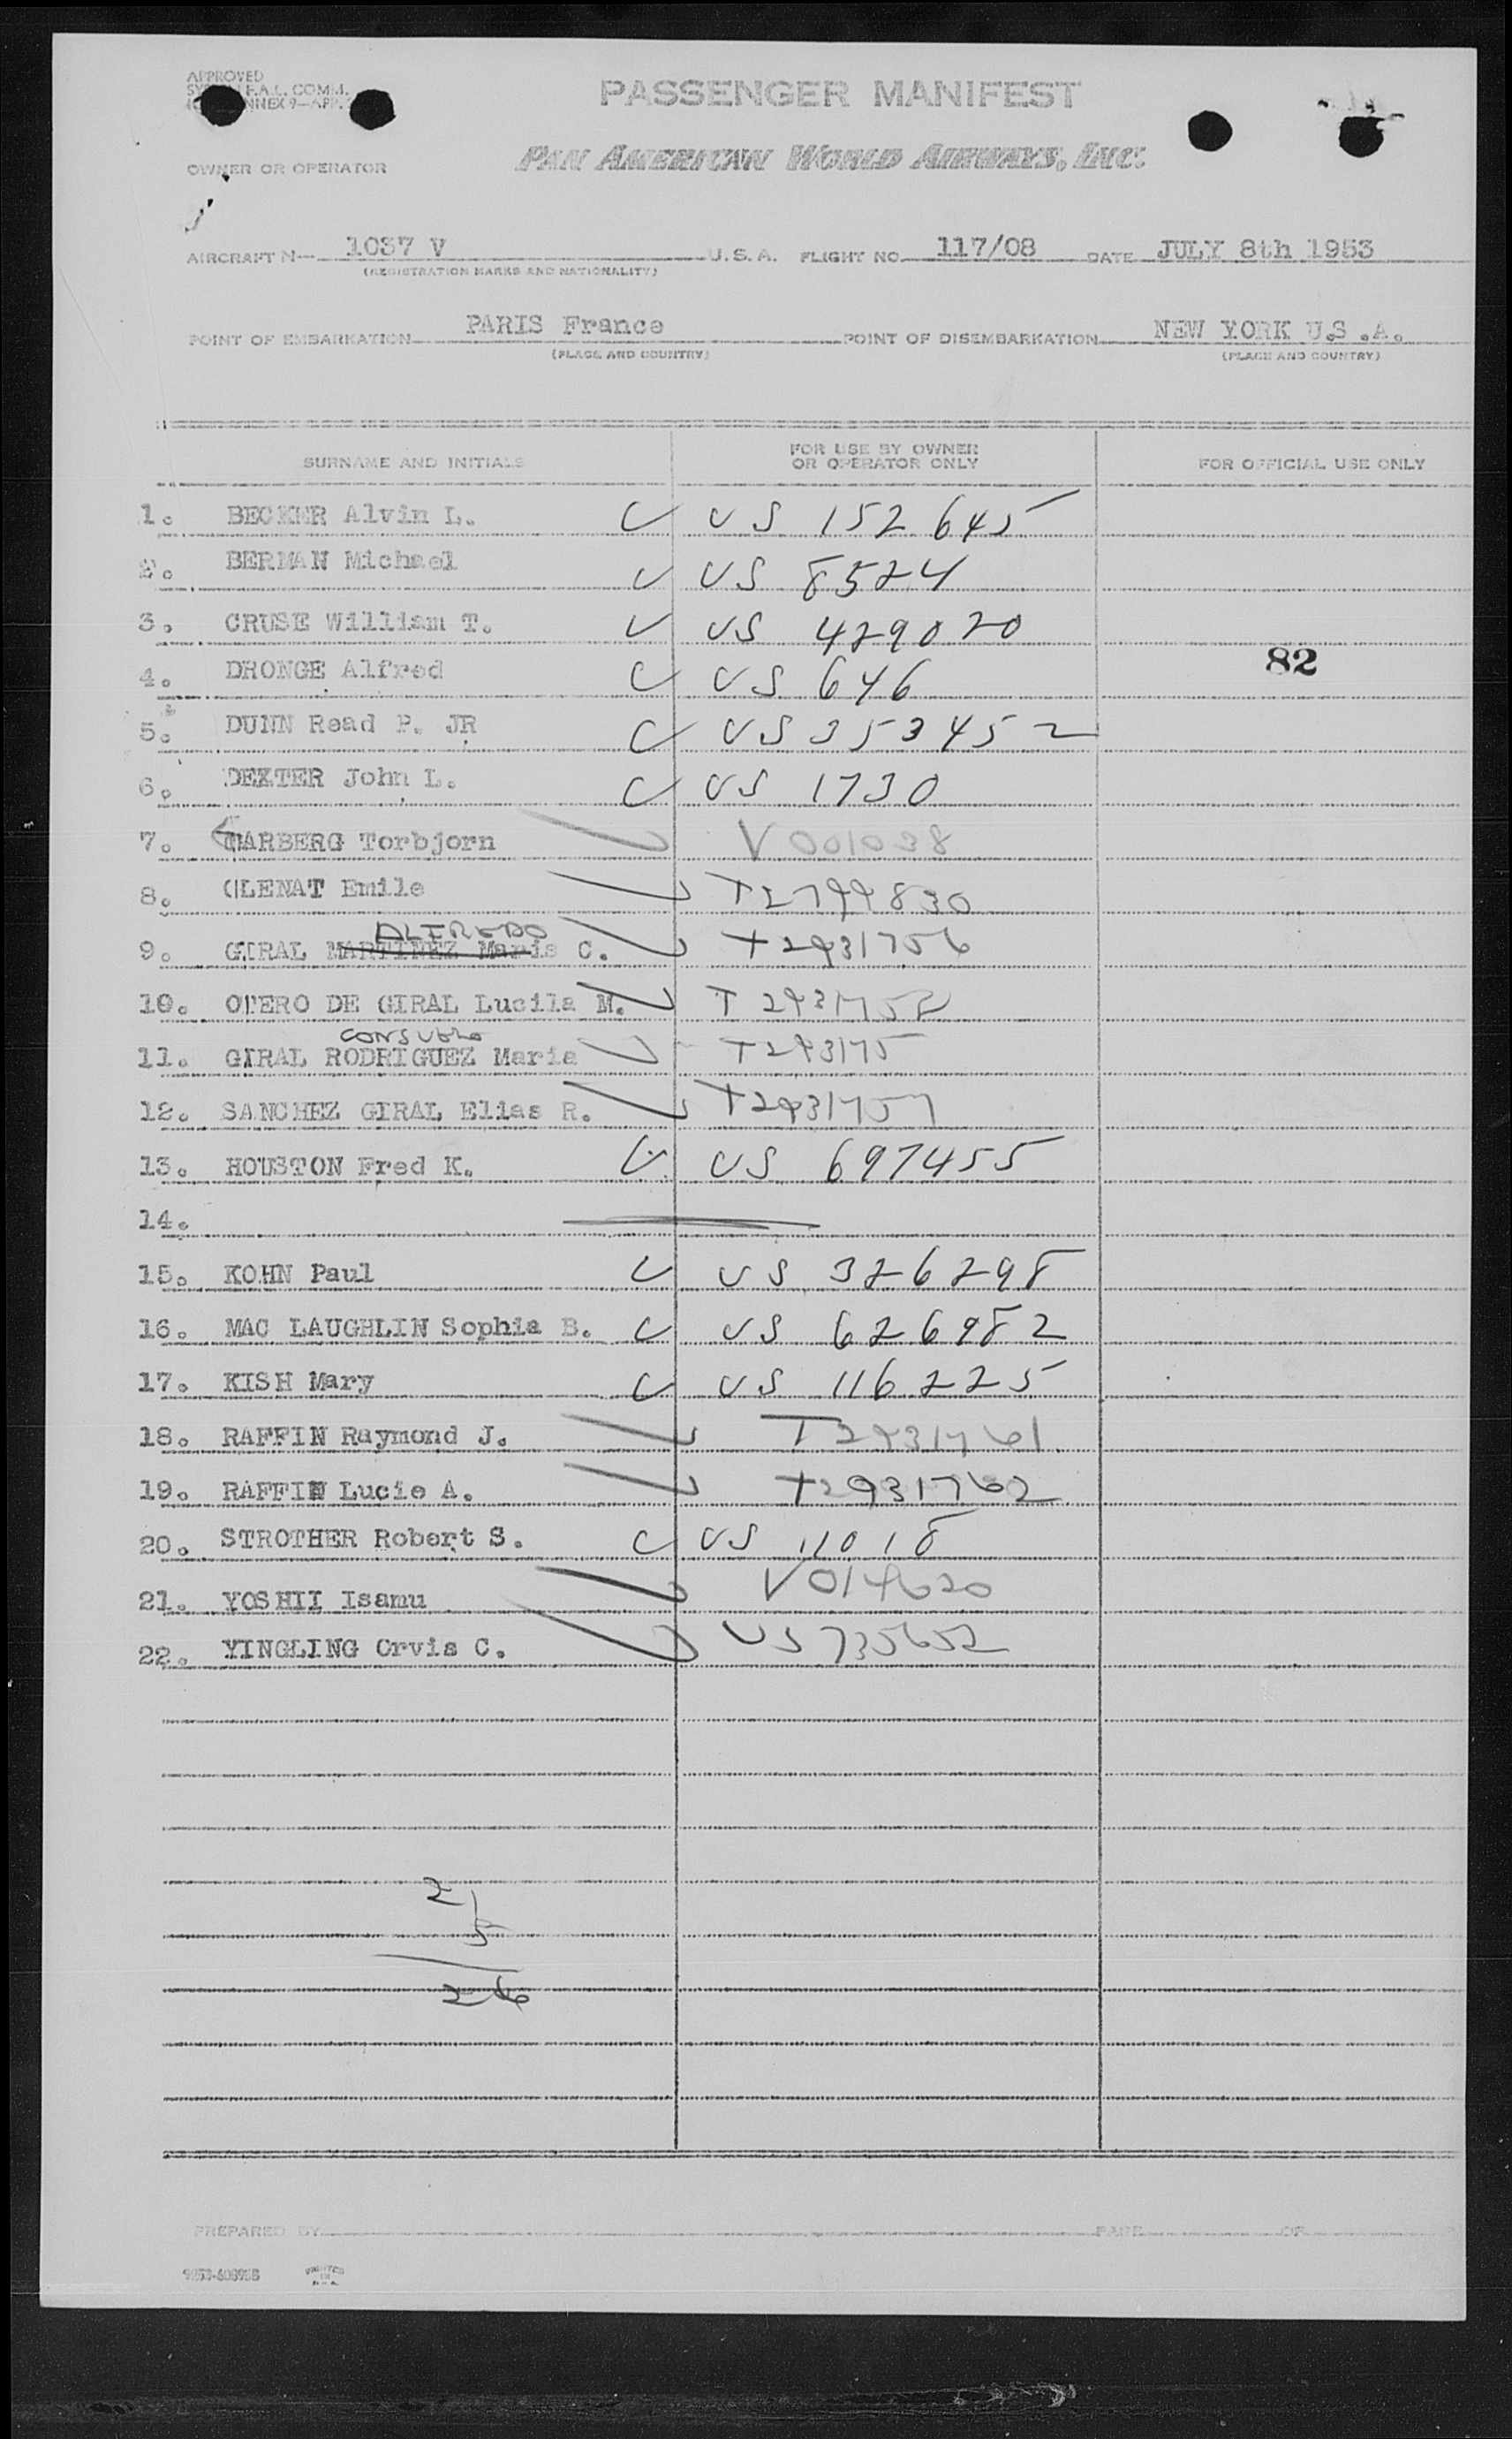 APPROVED
F.A.L. COMM.
ANNEX 9—APP.
PASSENGER MANIFEST
OWNER OR OPERATOR
PAN AMERICAN WORLD AIRWAYS, INC.
AIRCRAFT N— 1037 V U.S.A. FLIGHT NO. 117/08 DATE JULY 8th 1953
(REGISTRATION MARKS AND NATIONALITY)
POINT OF EMBARKATION PARIS France POINT OF DISEMBARKATION NEW YORK U.S.A.
(PLACE AND COUNTRY) (PLACE AND COUNTRY)
SURNAME AND INITIALS FOR USE BY OWNER OR OPERATOR ONLY FOR OFFICIAL USE ONLY
1. BECKER Alvin L. US 152645
2. BERMAN Michael US 8524
3. CRUSE William T. US 429020
82
4. DRONGE Alfred US 646
5. DUNN Read P. JR US 353452
6. DEXTER John L. US 1730
7. GARBERG Torbjorn V 001038
8. GLENAT Emile T2799830
ALFREDO
9. GIRAL MARTINEZ Maria C. T2931756
10. OTERO DE GIRAL Lucila M. T2931758
CONSUELO
11. GIRAL RODRIGUEZ Maria T293175
12. SANCHEZ GIRAL Elias R. T2931757
13. HOUSTON Fred K. US 697455
14.
15. KOHN Paul US 326298
16. MAC LAUGHLIN Sophia B. US 626982
17. KISH Mary US 116225
18. RAFFIN Raymond J. T2931761
19. RAFFIN Lucie A. T2931762
20. STROTHER Robert S. US 11018
21. YOSHII Isamu V014620
22. YINGLING Orvis C. US 735652
21
5
26
PREPARED BY PAGE OF
PRINTED
IN